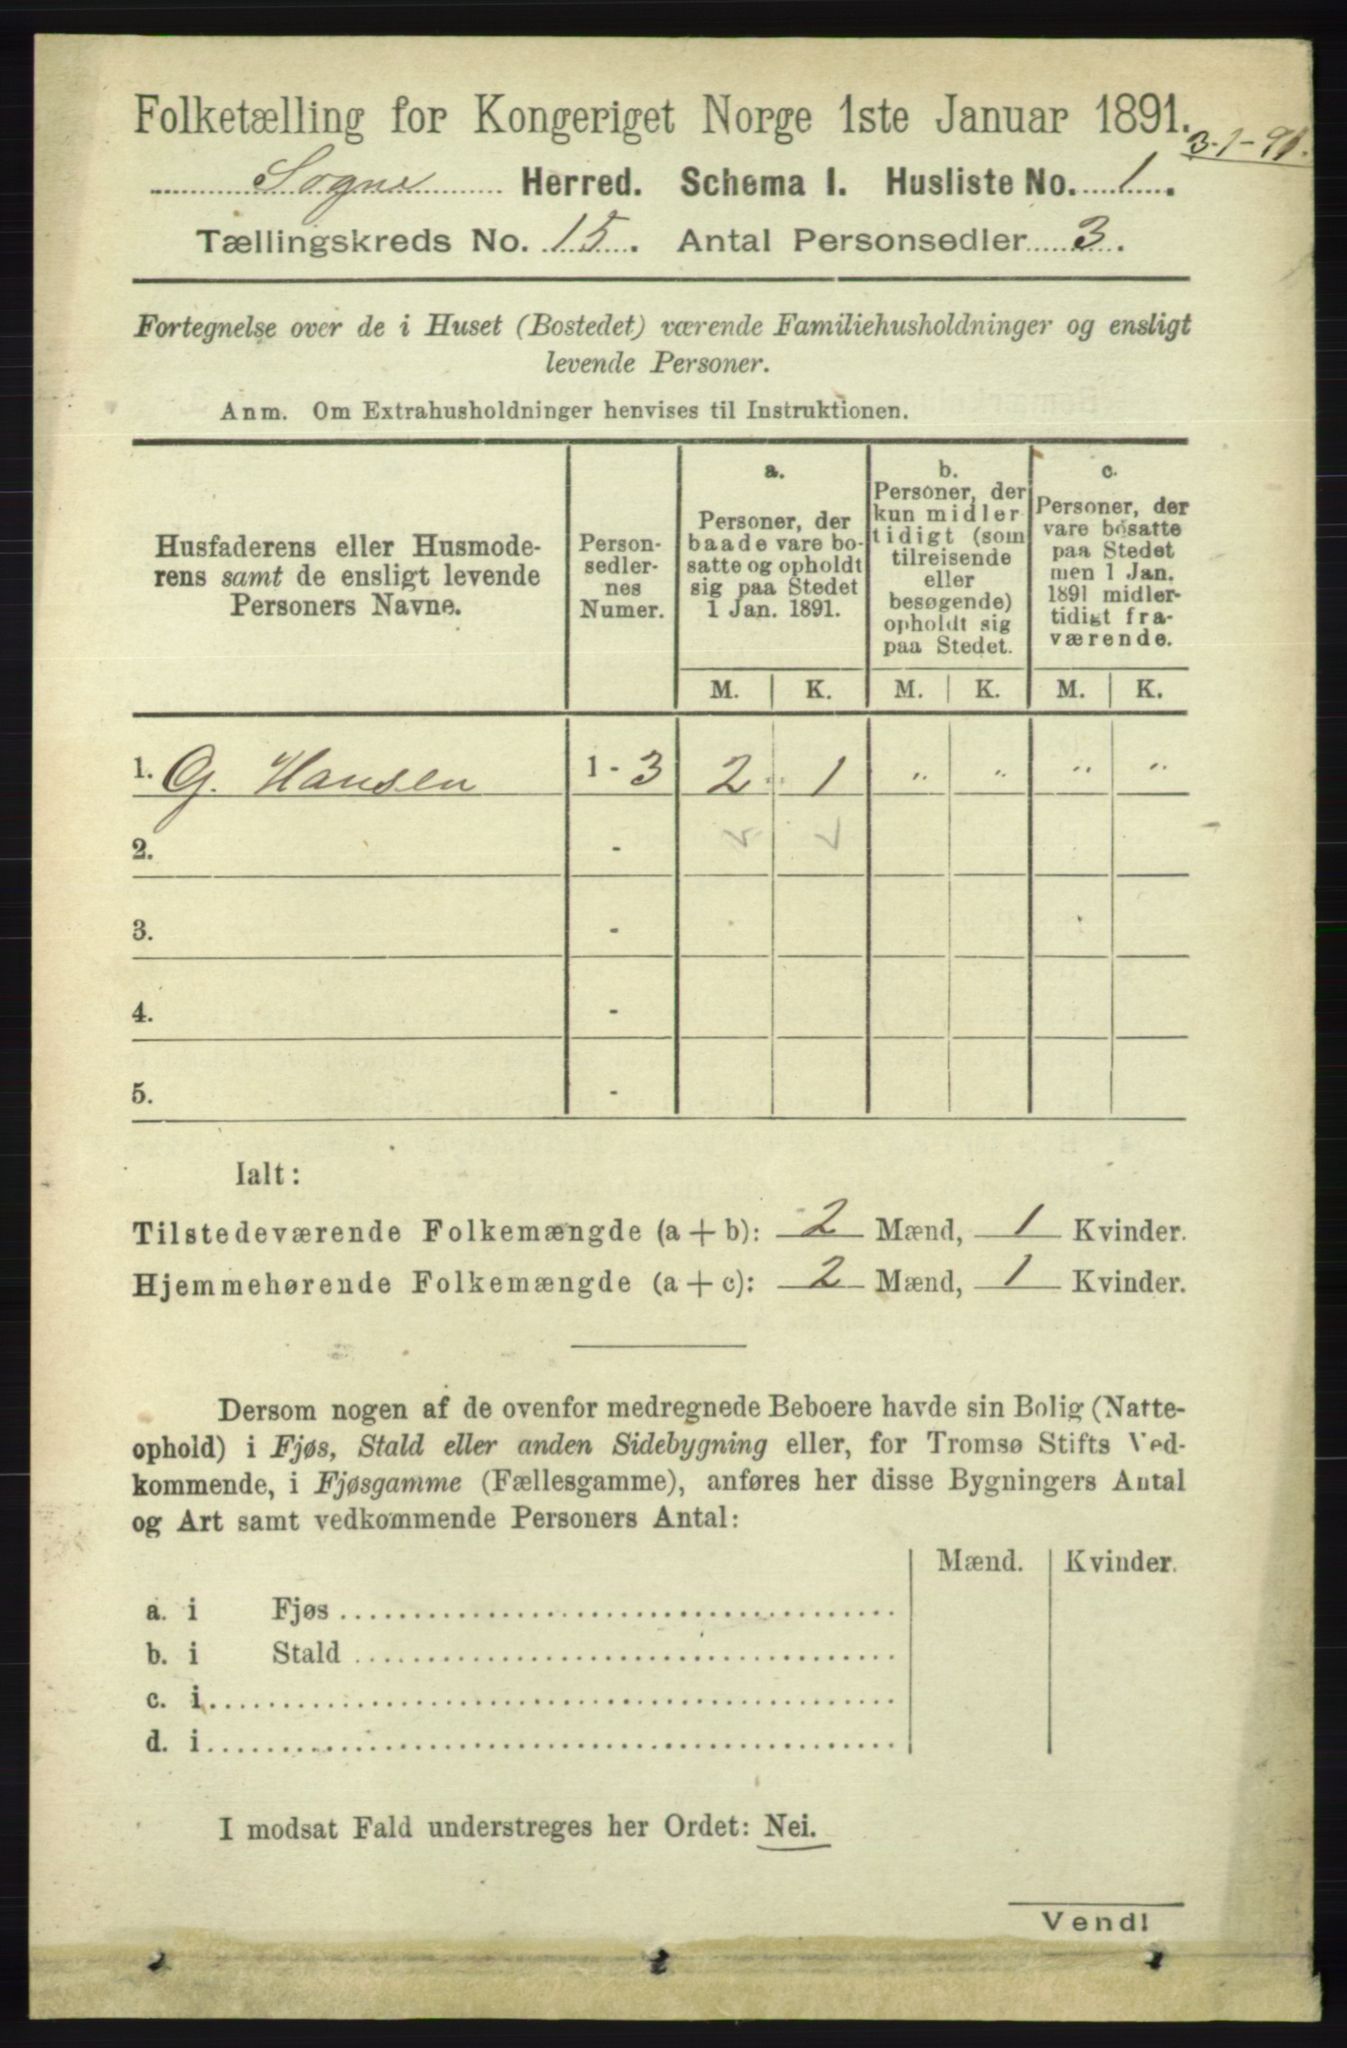 Folketælling for Kongeriget Norge 1ste Januar 1891.
3-1-91.
Sogne Herred. Schema I. Husliste No. 1.
Tællingskreds No. 15. Antal Personsedler 3.
Fortegnelse over de i Huset (Bostedet) værende Familiehusholdninger og ensligt
levende Personer.
Anm. Om Extrahusholdninger henvises til Instruktionen.
Husfaderens eller Husmode-
rens samt de ensligt levende
Personers Navne.
Person-
sedler-
nes
Numer.
a.
Personer, der
baade vare bo-
satte og opholdt
sig paa Stedet
1 Jan. 1891.
b.
Personer, der
kun midler
tidigt (som
tilreisende
eller
besøgende)
opholdt sig
paa Stedet.
c.
Personer, der
vare bosatte
paa Stedet
men 1 Jan.
1891 midler-
tidigt fra-
værende.
M. K. M. K. M. K.
1. G. Hansen 1-3 2 1 " " " "
2. -
3. -
4. -
5. -
Ialt:
Tilstedeværende Folkemængde (a+b): 2 Mænd, 1 Kvinder.
Hjemmehørende Folkemængde (a+c): 2 Mænd, 1 Kvinder.
Dersom nogen af de ovenfor medregnede Beboere havde sin Bolig (Natte-
ophold) i Fjøs, Stald eller anden Sidebygning eller, for Tromsø Stifts Ved-
kommende, i Fjøsgamme (Fællesgamme), anføres her disse Bygningers Antal
og Art samt vedkommende Personers Antal:
Mænd. Kvinder.
a. i Fjøs
b. i Stald
c. i
d. i
I modsat Fald understreges her Ordet: Nei.
Vend!